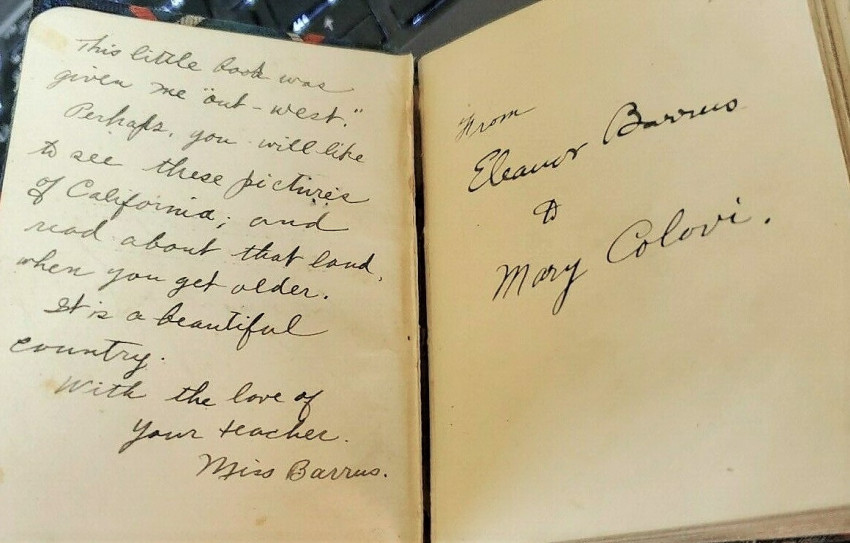 This little book was
given me "out-west."
Perhaps, you will like
to see these pictures
of California; and
read about that land,
when you get older.
It is a beautiful
country.
With the love of
your teacher.
Miss Barrus.
From
Eleanor Barrus
to
Mary Colovi.